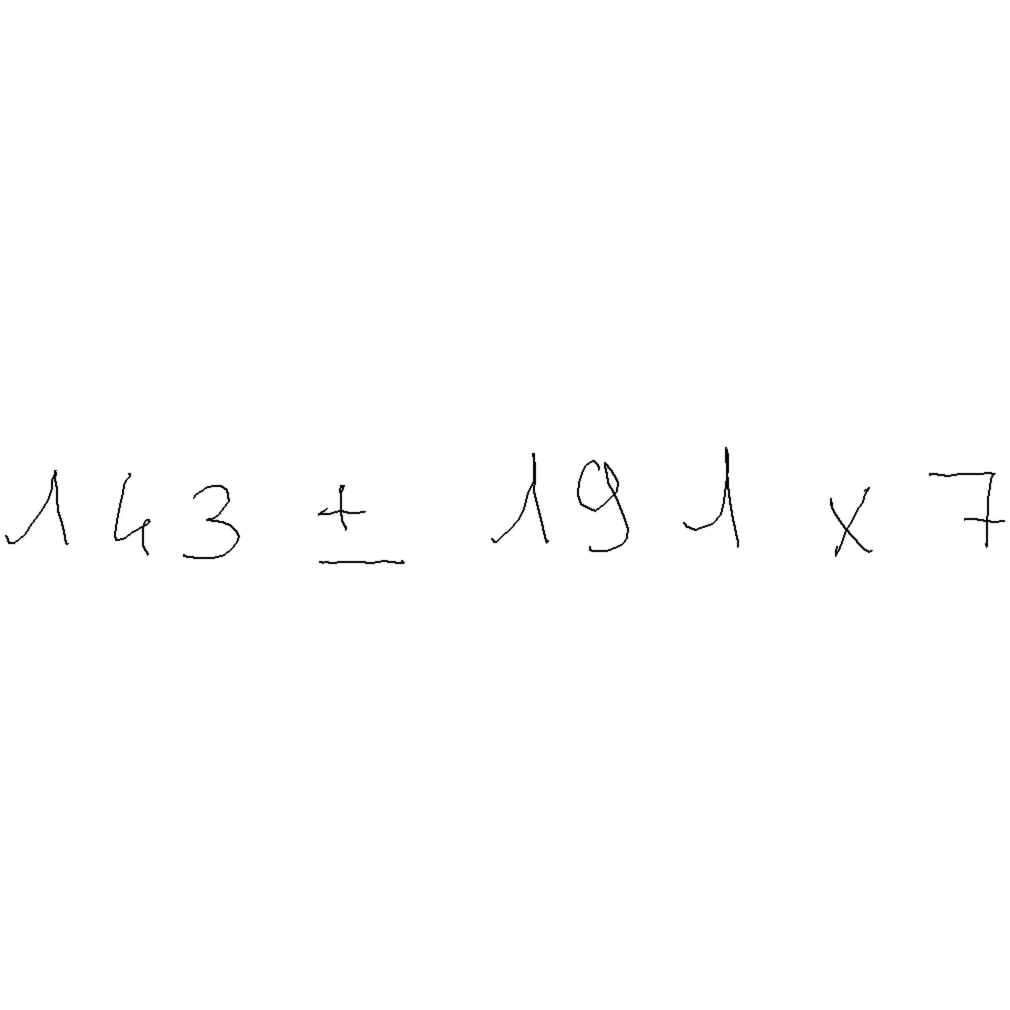 143 ± 191 x 7